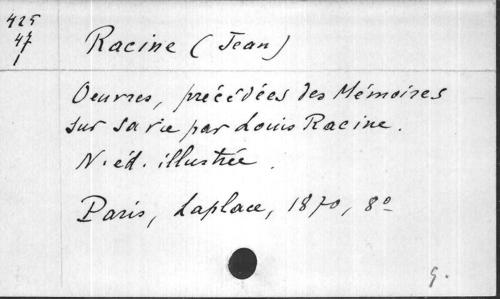 425
47
1
Racine (Jean)
Oeuvres, précédées des Mémoires
sur sa vie par Louis Racine.
N. éd. illustrée.
Paris, Laplace, 1870, 8o
G.